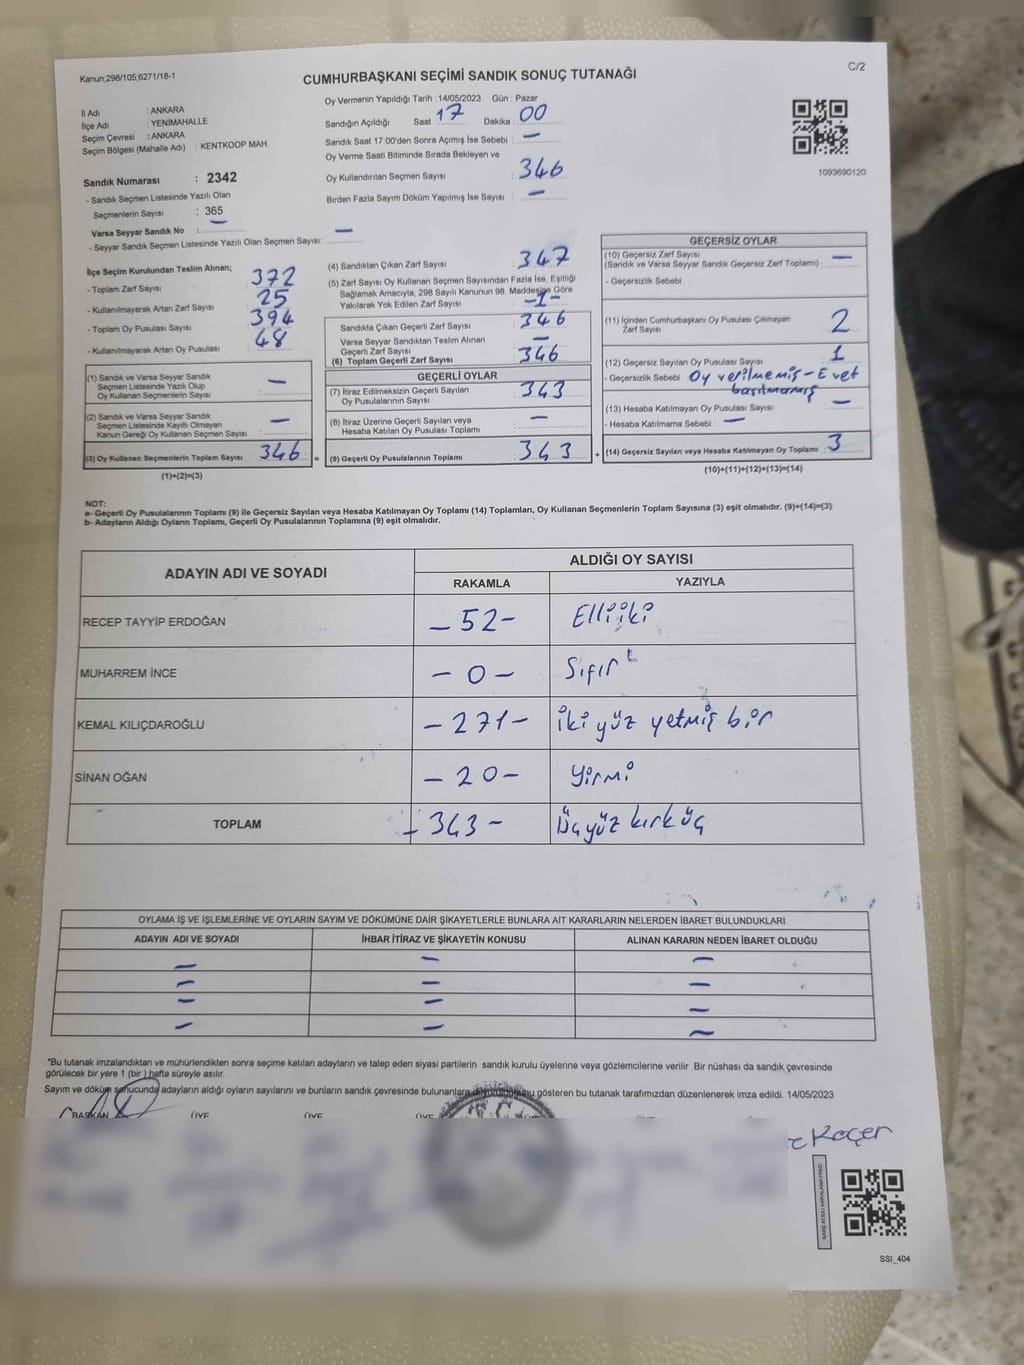 Kanun;298/105;6271/18-1
CUMHURBAŞKANI SEÇİMİ SANDIK SONUÇ TUTANAĞI
C/2
İl Adı : ANKARA
İlçe Adı : YENİMAHALLE
Seçim Çevresi : ANKARA
Seçim Bölgesi (Mahalle Adı) : KENTKOOP MAH.
Sandık Numarası : 2342
- Sandık Seçmen Listesinde Yazılı Olan
Seçmenlerin Sayısı : 365
Varsa Seyyar Sandık No : —
- Seyyar Sandık Seçmen Listesinde Yazılı Olan Seçmen Sayısı: —
Oy Vermenin Yapıldığı Tarih : 14/05/2023 Gün : Pazar
Sandığın Açıldığı Saat : 17 Dakika : 00
Sandık Saat 17:00'den Sonra Açımış İse Sebebi : —
Oy Verme Saati Bitiminde Sırada Bekleyen ve
Oy Kullandırılan Seçmen Sayısı : 346
Birden Fazla Sayım Döküm Yapılmış İse Sayısı : —
1093690120
İlçe Seçim Kurulundan Teslim Alınan;
- Toplam Zarf Sayısı 372
- Kullanılmayarak Artan Zarf Sayısı : 25
- Toplam Oy Pusulası Sayısı 394
- Kullanılmayarak Artan Oy Pusulası : 48
(1) Sandık ve Varsa Seyyar Sandık
Seçmen Listesinde Yazılı Olup
Oy Kullanan Seçmenlerin Sayısı : —
(2) Sandık ve Varsa Seyyar Sandık
Seçmen Listesinde Kayıtlı Olmayan
Kanun Gereği Oy Kullanan Seçmen Sayısı : —
(3) Oy Kullanan Seçmenlerin Toplam Sayısı 346 =
(1)+(2)=(3)
(4) Sandıktan Çıkan Zarf Sayısı : 347
(5) Zarf Sayısı Oy Kullanan Seçmen Sayısından Fazla İse, Eşitliği
Sağlamak Amacıyla, 298 Sayılı Kanunun 98. Maddesine Göre
Yakılarak Yok Edilen Zarf Sayısı : -1-
Sandıkta Çıkan Geçerli Zarf Sayısı : 346
Varsa Seyyar Sandıktan Teslim Alınan
Geçerli Zarf Sayısı : —
(6) Toplam Geçerli Zarf Sayısı : 346
GEÇERLİ OYLAR
(7) İtiraz Edilmeksizin Geçerli Sayılan
Oy Pusulalarının Sayısı : 343
(8) İtiraz Üzerine Geçerli Sayılan veya
Hesaba Katılan Oy Pusulası Toplamı : —
(9) Geçerli Oy Pusulalarının Toplamı : 343 +
GEÇERSİZ OYLAR
(10) Geçersiz Zarf Sayısı
(Sandık ve Varsa Seyyar Sandık Geçersiz Zarf Toplamı) : —
- Geçersizlik Sebebi :
(11) İçinden Cumhurbaşkanı Oy Pusulası Çıkmayan
Zarf Sayısı : 2
(12) Geçersiz Sayılan Oy Pusulası Sayısı : 1
- Geçersizlik Sebebi Oy verilmemiş - Evet
basılmamış
(13) Hesaba Katılmayan Oy Pusulası Sayısı : —
- Hesaba Katılmama Sebebi : —
(14) Geçersiz Sayılan veya Hesaba Katılmayan Oy Toplamı : 3
(10)+(11)+(12)+(13)=(14)
NOT:
a- Geçerli Oy Pusulalarının Toplamı (9) ile Geçersiz Sayılan veya Hesaba Katılmayan Oy Toplamı (14) Toplamları, Oy Kullanan Seçmenlerin Toplam Sayısına (3) eşit olmalıdır. (9)+(14)=(3)
b- Adayların Aldığı Oyların Toplamı, Geçerli Oy Pusulalarının Toplamına (9) eşit olmalıdır.
ADAYIN ADI VE SOYADI
ALDIĞI OY SAYISI
RAKAMLA YAZIYLA
RECEP TAYYİP ERDOĞAN - 52 - Elliiki
MUHARREM İNCE - 0 - Sıfır
KEMAL KILIÇDAROĞLU - 271 - iki yüz yetmiş bir
SİNAN OĞAN - 20 - Yirmi
TOPLAM - 343 - Üçyüz kırk üç
OYLAMA İŞ VE İŞLEMLERİNE VE OYLARIN SAYIM VE DÖKÜMÜNE DAİR ŞİKAYETLERLE BUNLARA AİT KARARLARIN NELERDEN İBARET BULUNDUKLARI
ADAYIN ADI VE SOYADI İHBAR İTİRAZ VE ŞİKAYETİN KONUSU ALINAN KARARIN NEDEN İBARET OLDUĞU
— — —
— — —
— — —
— — —
*Bu tutanak imzalandıktan ve mühürlendikten sonra seçime katılan adayların ve talep eden siyasi partilerin sandık kurulu üyelerine veya gözlemcilerine verilir .Bir nüshası da sandık çevresinde
görülecek bir yere 1 (bir ) hafta süreyle asılır.
Sayım ve döküm sonucunda adayların aldığı oyların sayılarını ve bunların sandık çevresinde bulunanlara gösteren bu tutanak tarafımızdan düzenlenerek imza edildi. 14/05/2023
BAŞKAN ÜYE ÜYE ÜYE
Koçer
KARE KODU KARALAMAYINIZ!
SSI_404